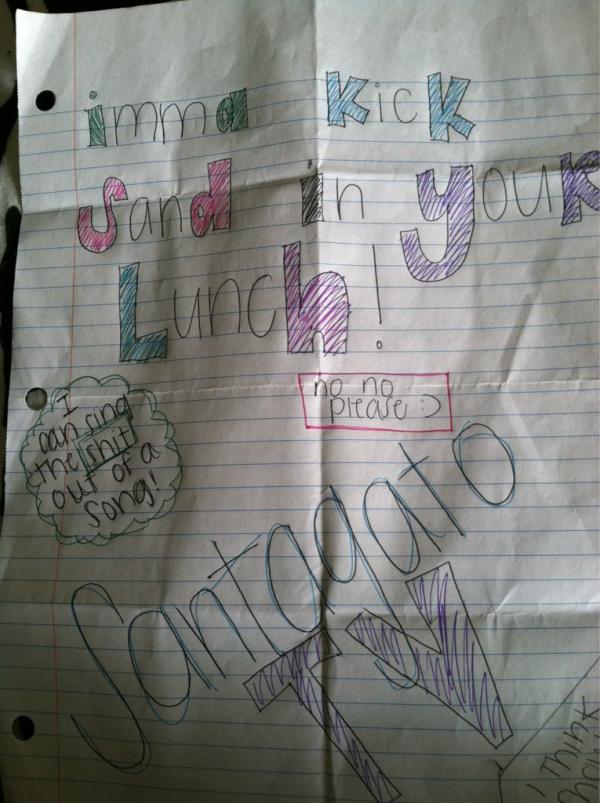 imma Kick
Sand in youR
Lunch!
no no
please :)
I
can sing
the shit
out of a
song!
Santagato
TV
I Think